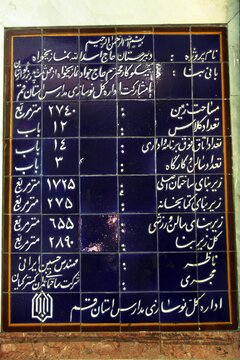 بسم الله الرحمن الرحیم
نام پروژه : دبیرستان حاج اسدالله نمازیخواه
بانی بنا : نیکوکار محترم حاج جواد نمازیخواه
با مشارکت اداره کل نوسازی مدارس استان قم
مساحت زمین : ۲۷۴۰ مترمربع
تعداد کلاس : ۱۲ باب
تعداد اتاق پرورشی و اداری : ۱۴ باب
تعداد سالن و کارگاه : ۳ باب
زیربنای ساختمان اصلی : ۱۷۲۵ مترمربع
زیربنای کتابخانه : ۲۷۵ مترمربع
زیربنای سالن ورزشی : ۶۵۵ مترمربع
زیربنای کل : ۲۸۹۰ مترمربع
ناظر : مهندس حسین ایرانی
مجری : شرکت ساختمانی
اداره کل نوسازی مدارس استان قم